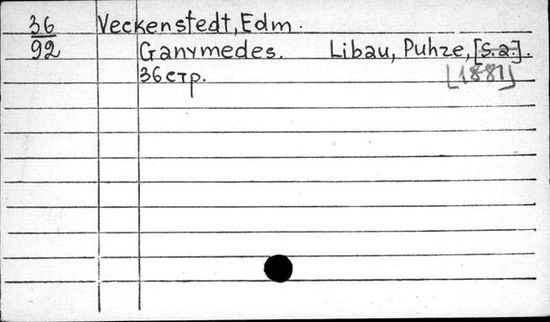 36 Veckenstedt, Edm.
92 Ganymedes. Libau, Puhze, [s.a.].
36 стр. [1881]